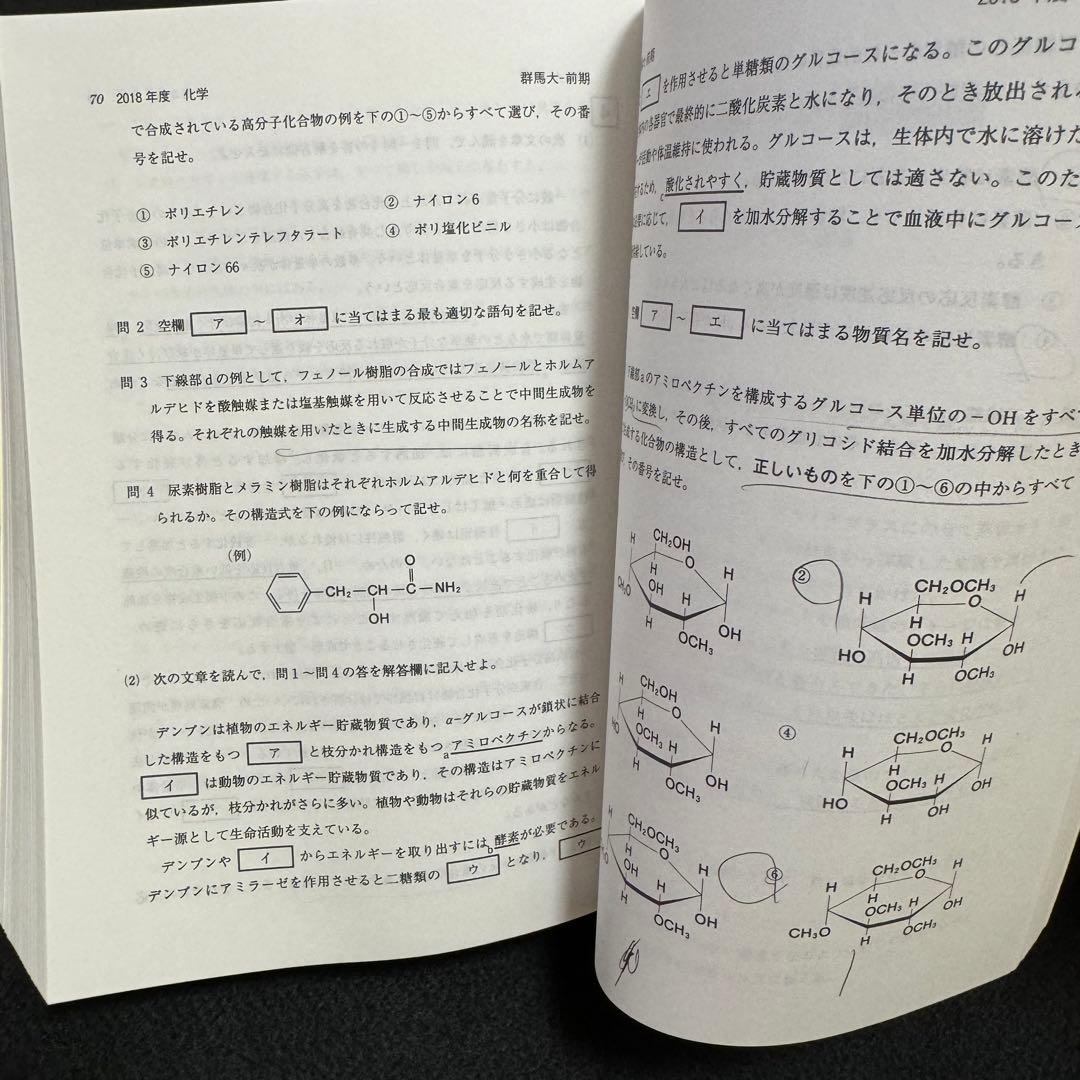 70 2018年度 化学
群馬大-前期
で合成されている高分子化合物の例を下の①～⑤からすべて選び，その番
号を記せ。
① ポリエチレン
② ナイロン6
③ ポリエチレンテレフタラート
④ ポリ塩化ビニル
⑤ ナイロン66
問2 空欄 ア ～ オ に当てはまる最も適切な語句を記せ。
問3 下線部dの例として，フェノール樹脂の合成ではフェノールとホルムア
ルデヒドを酸触媒または塩基触媒を用いて反応させることで中間生成物を
得る。それぞれの触媒を用いたときに生成する中間生成物の名称を記せ。
問4 尿素樹脂とメラミン樹脂はそれぞれホルムアルデヒドと何を重合して得
られるか。その構造式を下の例にならって記せ。
(例)
O
CH₂-CH-C-NH₂
OH
(2) 次の文章を読んで，問1～問4の答を解答欄に記入せよ。
デンプンは植物のエネルギー貯蔵物質であり，α-グルコースが鎖状に結合
した構造をもつ ア と枝分かれ構造をもつ aアミロペクチンからなる。
イ は動物のエネルギー貯蔵物質であり，その構造はアミロペクチンに
似ているが，枝分かれがさらに多い。植物や動物はそれらの貯蔵物質をエネル
ギー源として生命活動を支えている。
デンプンや イ からエネルギーを取り出すには b酵素が必要である。
デンプンにアミラーゼを作用させると二糖類の ウ となり， ウ
前期
エ を作用させると単糖類のグルコースになる。このグルコ
の各器官で最終的に二酸化炭素と水になり，そのとき放出され
活動や体温維持に使われる。グルコースは，生体内で水に溶けた
するため，c酸化されやすく，貯蔵物質としては適さない。このた
に応じて， イ を加水分解することで血液中にグルコー
している。
ア ～ エ に当てはまる物質名を記せ。
下線部aのアミロペクチンを構成するグルコース単位の－OHをすべ
に変換し，その後，すべてのグリコシド結合を加水分解したとき
する化合物の構造として，正しいものを下の①～⑥の中からすべて
，その番号を記せ。
CH₂OH
H
O
H
OH
H
CH₃O
H
OCH₃
OH
②
CH₂OCH₃
H
H
O
H
OCH₃
H
HO
H
OCH₃
OH
CH₂OH
H
H
O
H
OCH₃
H
HO
H
OCH₃
OH
④
CH₂OCH₃
H
H
O
H
OCH₃
H
HO
H
OH
OH
CH₂OCH₃
H
H
O
H
OH
H
H
OCH₃
OH
⑥
CH₂OCH₃
H
H
O
H
OCH₃
H
CH₃O
H
OCH₃
OH